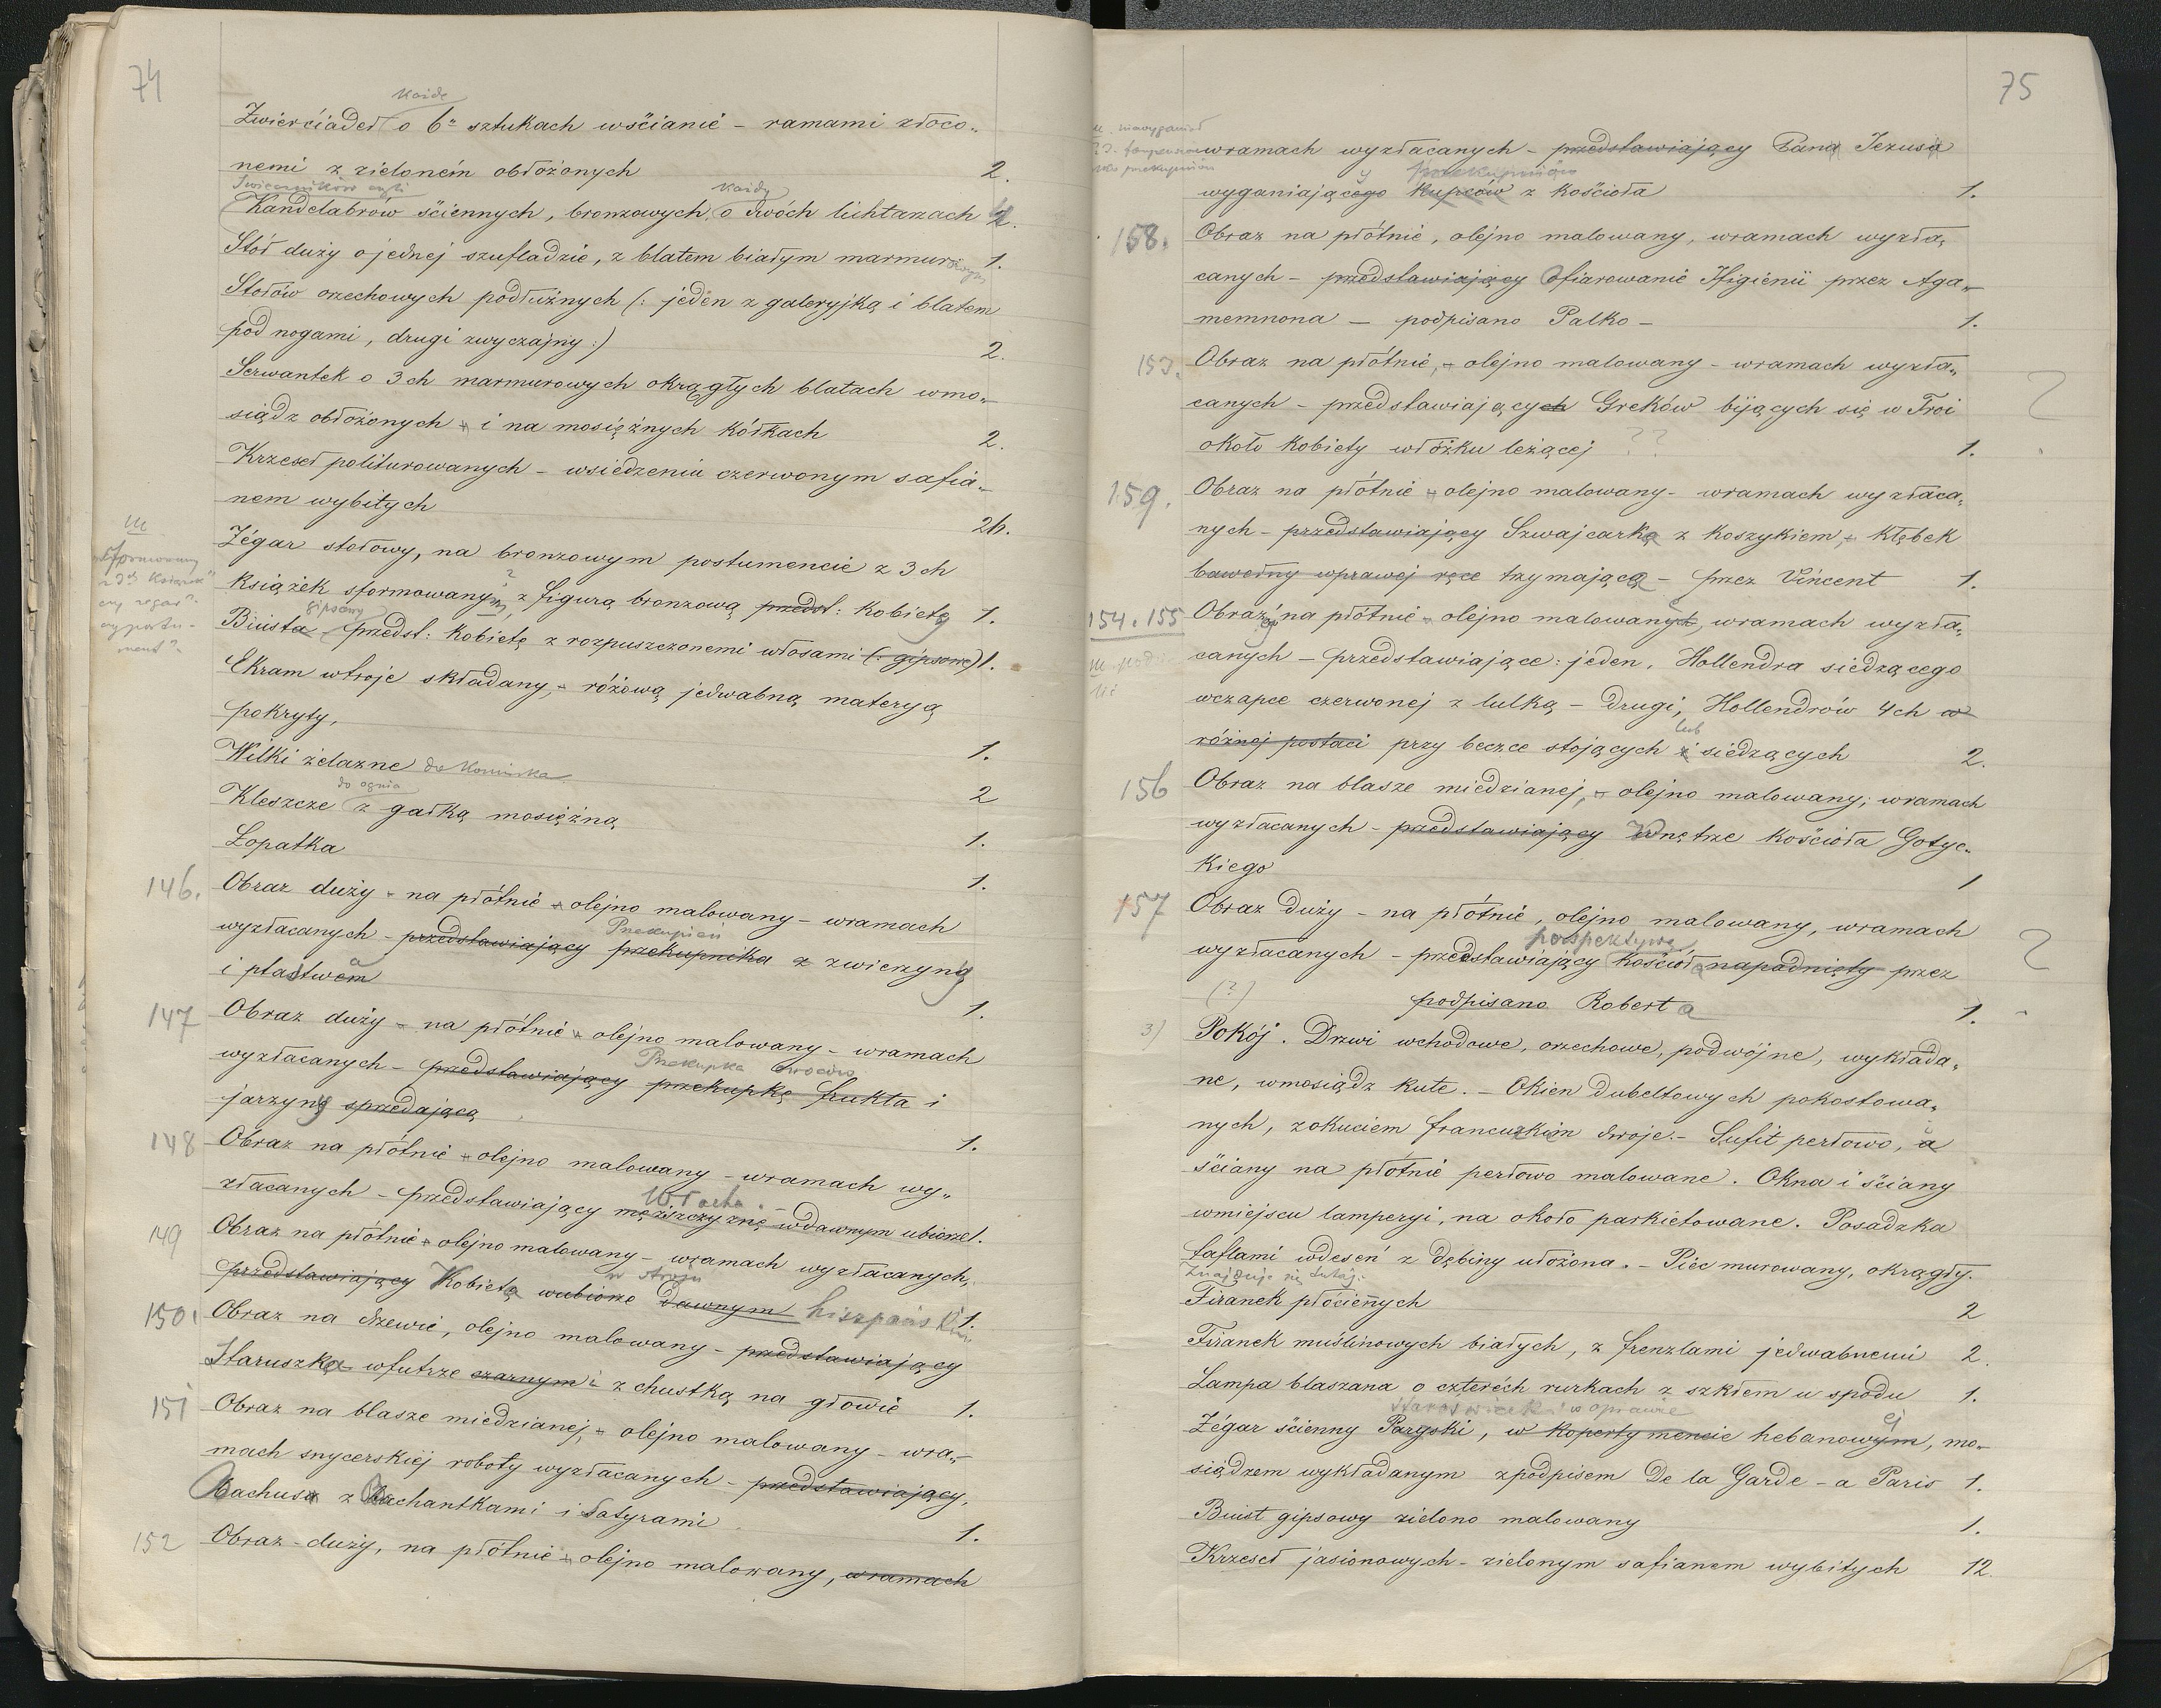 74
każde
Zwierciadeł o 6u sztukach wścianie – ramami złoco„
nemi z zieloném obłożonych 2.
Świeczników czyli każdy
Kandelabrów ściennych, bronzowych, o dwóch lichtarzach
Stół duży o jednej szufladzie, z blatem białym marmurowym 1.
Stołów orzechowych podłużnych (: jeden z galeryjką i blatem
pod nogami, drugi zwyczajny :) 2.
Serwantek o 3ch marmurowych okrągłych blatach wmo„
siądz obłożonych i na mosiężnych kółkach 2.
Krzeseł politurowanych – wsiedzeniu czerwonym safia„
nem wybitych 24.
Zégar stołowy, na bronzowym postumencie z 3ch
książek sformowanym, z figurą bronzową przedst: kobietę 1.
gipsowy
Biusta przedst: kobietę z rozpuszczonemi włosami (: gipsowe) 1.
Ekram wtroje składany, różową jedwabną materyą
pokryty, 1.
Wilki żelazne do kominka 2
do ognia
Kleszcze z gałką mosiężną 1.
Łopatka 1.
146. Obraz duży – na płótnie – olejno malowany – wramach
Przekupień
wyzłacanych – przedstawiający przekupnika z zwierzyną
i ptastwem 1.
147 Obraz duży – na płótnie – olejno malowany – wramach
Przekupka owoców
wyzłacanych – przedstawiający przekupkę frukta i
jarzyny sprzedającą 1.
148 Obraz na płótnie – olejno malowany – wramach wy„
Włocha
złacanych – przedstawiający mężiszczyznę wdawnym ubiorze 1.
149 Obraz na płótnie – olejno malowany – wramach wyzłacanych,
w stroju
przedstawiający Kobietę wubiorze dawnym hiszpańskim 1.
150. Obraz na drzewie, olejno malowany – przedstawiający
Staruszkę wfutrze czarnym i z chustką na głowie 1.
151 Obraz na blasze miedzianej, – olejno malowany – wra„
mach snycerskiéj roboty wyzłacanych – przedstawiający,
Bachusa z Bachantkami i Satyrami 1.
152 Obraz – duży, na płótnie – olejno malowany, wramach
75
wramach wyzłacanych – przedstawiający Pana Jezusa
przekupniów
wyganiającego kupców z kościoła 1.
158. Obraz na płótnie, olejno malowany, wramach wyzła„
canych – przedstawiający Ofiarowanie Ifigienii przez Aga„
memnona – podpisano Palko – 1.
153. Obraz na płótnie, – olejno malowany – wramach wyzła„
canych – przedstawiających Greków bijących się w Troi ?
około kobiety włóżku leżącej ?? 1.
159. Obraz na płótnie – olejno malowany – wramach wyzłaca„
nych – przedstawiający Szwajcarkę z koszykiem, – kłębek
bawełny wprawej ręce trzymającą – przez Vincent 1.
154. 155 Obrazy na płótnie – olejno malowanych, wramach wyzła„
canych – przedstawiające: jeden, Hollendra siedzącego
wczapce czerwonej z lulką – drugi, Hollendrów 4ch w
lub
różnej postaci przy beczce stojących i siedzących 2.
156 Obraz na blasze miedzianej, – olejno malowany, wramach
wyzłacanych – przedstawiający Wnętrze kościoła Gotyc„
kiego 1
157 Obraz duży – na płótnie, olejno malowany, wramach
perspektywę
wyzłacanych – przedstawiający kościoł napadnięty przez ?
(?) podpisano Roberta 1.
3) Pokój. Drzwi wchodowe, orzechowe, podwójne, wykłada„
ne, wmosiądz kute. – Okien dubeltowych pokostowa„
nych, zokuciem francuzkim dwoje. – Sufit perłowo, a
ściany na płótnie perłowo malowane. Okna i ściany
wmiejscu lamperyi, na około parkietowane. Posadzka
taflami wdeseń z dębiny ułożona. – Piéc murowany, okrągły.
Znajduje się tutaj:
Firanek płóciennych 2
Firanek muślinowych białych, z frenzlami jedwabnemi 2.
Lampa blaszana o czteréch rurkach z szkłem u spodu 1.
staroświecki w oprawie
Zégar ścienny Paryski, w kopertymencie hebanowym, mo„
siądzem wykładanym zpodpisem De la Garde – a Paris 1.
Biust gipsowy zielono malowany 1.
Krzeseł jasionowych – zielonym safianem wybitych 12.